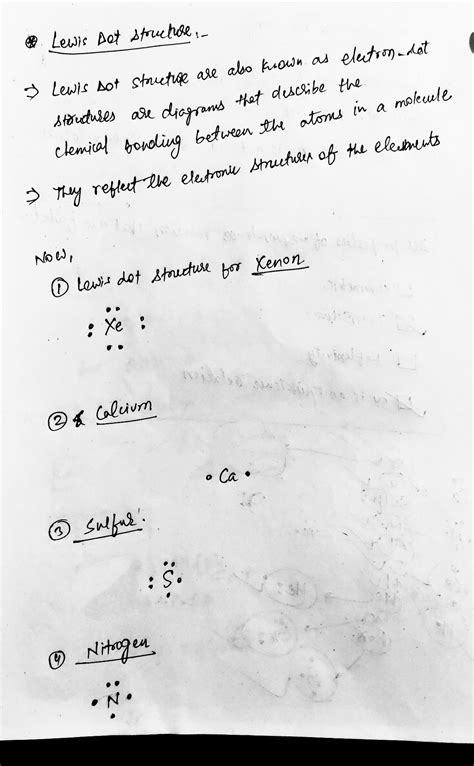 Lewis Dot Structure:-
→ Lewis Dot Structure are also known as electron-dot
structures are diagrams that describe the
chemical bonding between the atoms in a molecule
→ They reflect the electronic structures of the elements
Now,
① Lewis dot structure for Xenon
Xe
② Calcium
Ca
③ Sulfur:
S
④ Nitrogen
N